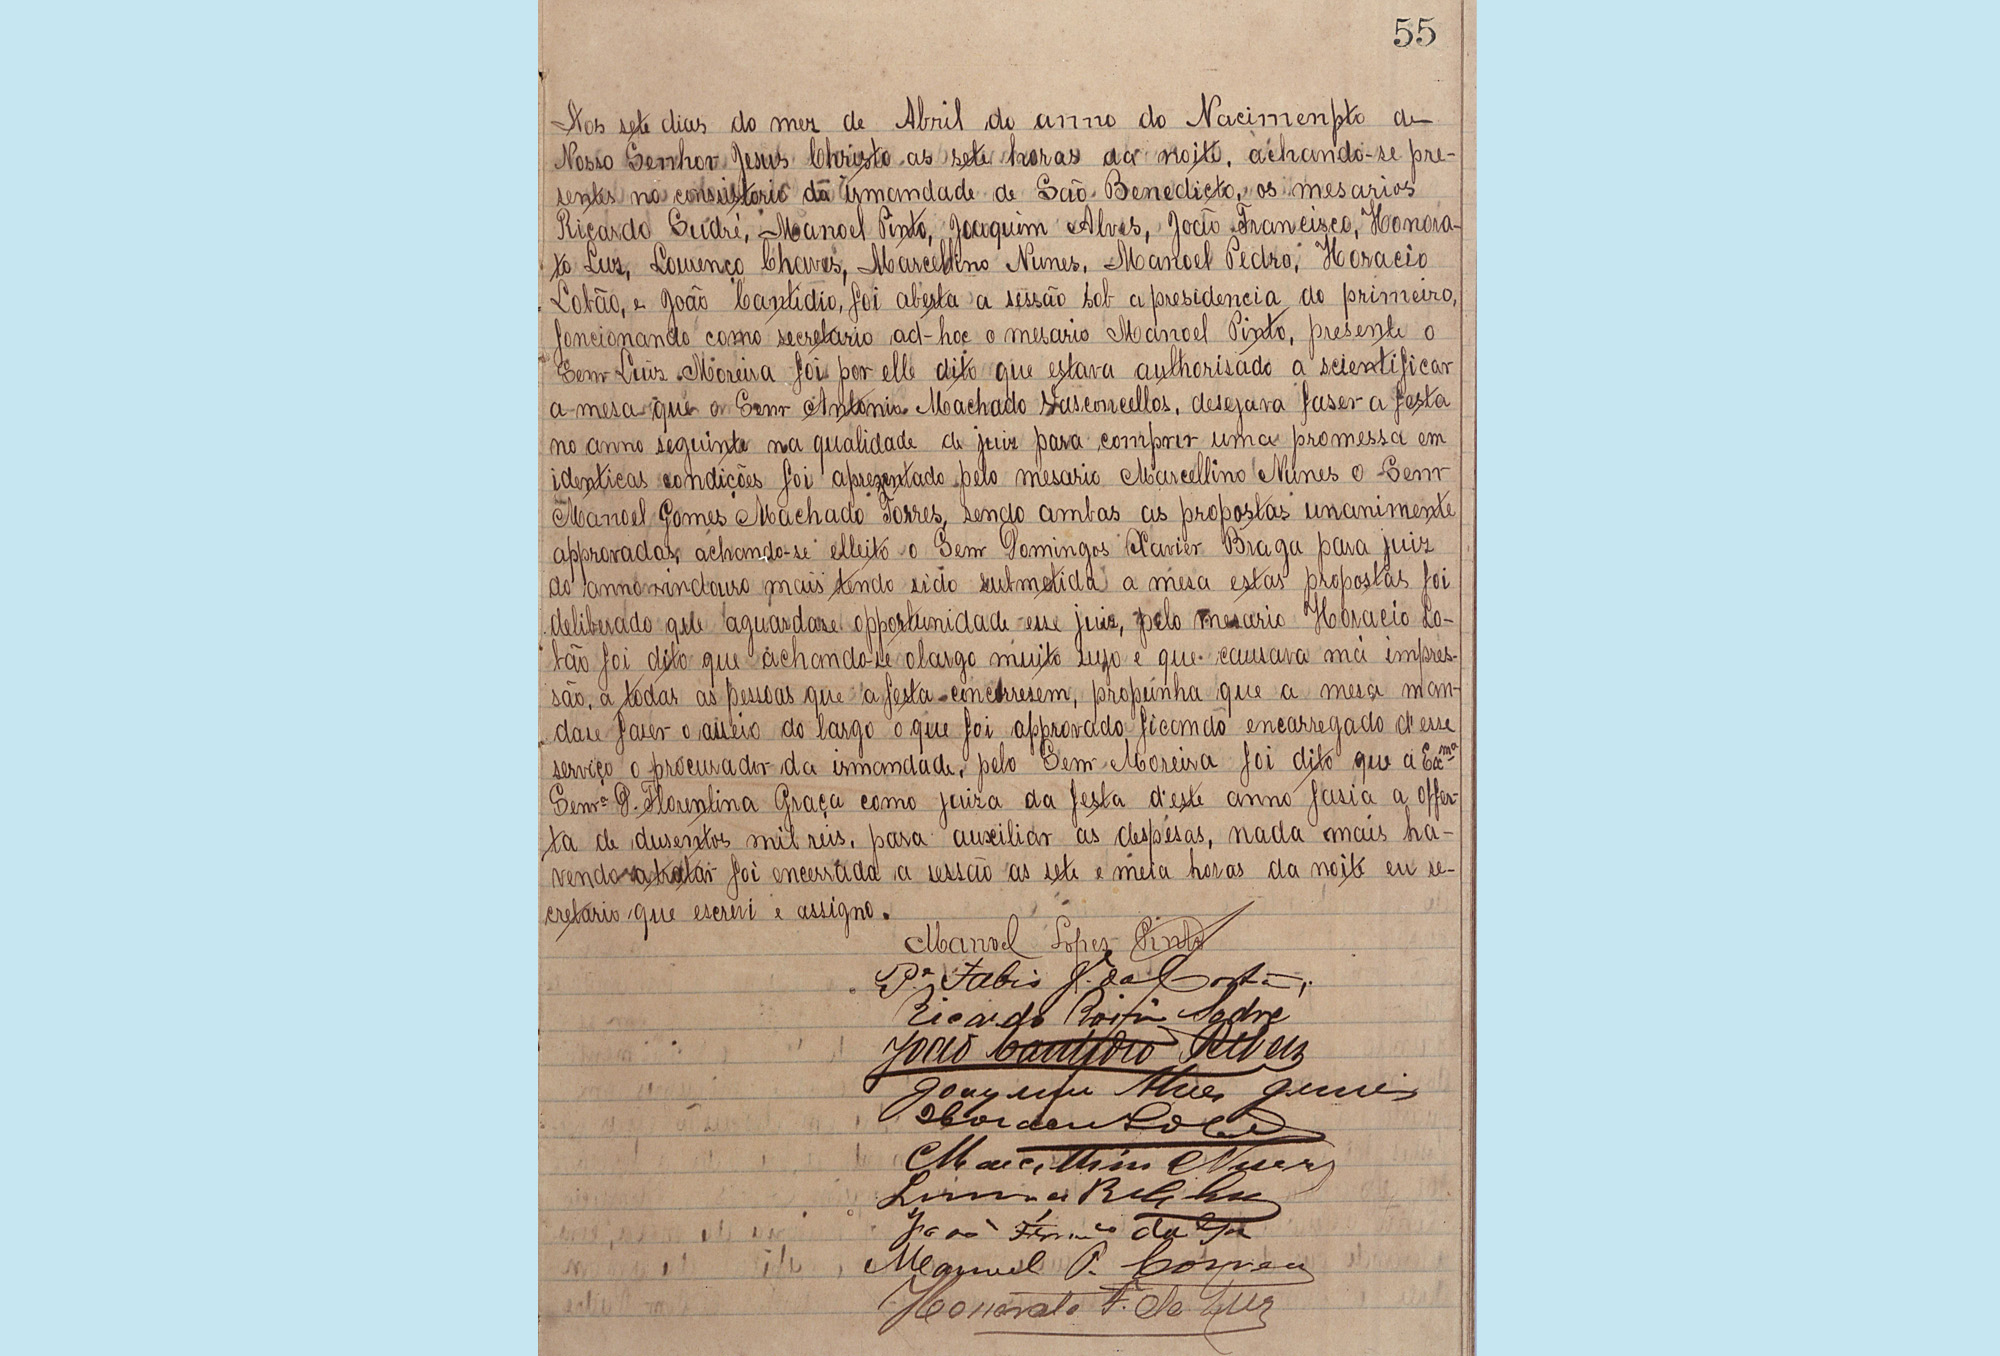 55
Aos sete dias do mez de Abril do anno do Nacimenpto de
Nosso Senhor Jesus Christo as sete horas da noite, achando-se pre-
sentes no consistorio da irmandade de São Benedicto, os mesarios
Ricardo Sudré, Manoel Pinto, Joaquim Alves, João Francisco, Honora-
to Luz, Lourenço Chaves, Marcellino Nunes, Manoel Pedro, Horacio
Lobão, e João Cantidio, foi aberta a sessão sob a presidencia do primeiro,
foncionando como secretario ad-hoc o mesario Manoel Pinto, presente o
Senr Luiz Moreira foi por elle dito que estava authorisado a scientificar
a mesa que o Senr Antonio Machado Vasconcellos, desejava faser a festa
no anno seguinte na qualidade de juiz para comprir uma promessa em
identicas condições foi aprezentado pelo mesario Marcellino Nunes o Senr
Manoel Gomes Machado Torres, sendo ambas as propostas unanimente
approvadas, achando-se elleito o Senr Domingos Xavier Braga para juiz
do anno vindouro mais tendo sido submetida a mesa estas propostas foi
deliberado que aguardase opportunidade esse juiz, pelo mesario Horacio Lo-
bão foi dito que achando-se o largo muito sujo e que causava má impres-
são, a todas as pessoas que a festa concorresem, propunha que a mesa man-
dase faser o asseio do largo o que foi approvado ficando encarregado d'esse
serviço o procurador da irmandade, pelo Senr Moreira foi dito que a Exmª
Senrª D. Florentina Graça como juiza da festa d'este anno fasia a offer-
ta de dusentos mil reis, para auxiliar as despesas, nada mais ha-
vendo a tratar foi encerrada a sessão as sete e meia horas da noite eu se-
cretario que escrevi e assigno.
Manoel Lopes Pinto
Pe. Fabio da Costa
Ricardo Sodré
João Cantidio
Joaquim Alves
Horacio Lobão
Marcellino Nunes
João da
Manoel P. Correa
Honorato F. da Luz